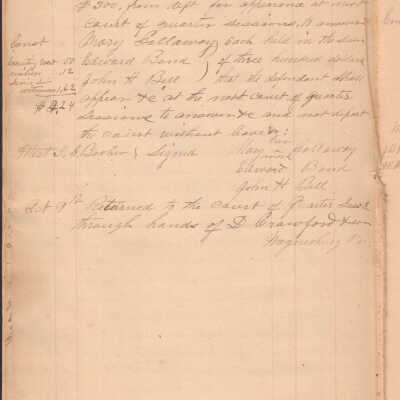 $300, bail for appearance at next
court of quarter sessions, to answer
Const
Mary Gollaway } Each held in the sum
Edward Bond } of three hundred dollars
John H Bell } that the defendant shall
witnesses 1,62
$ 9,24
appear &c at the next court of quarter
sessions to answer &c and not depart
the court without leave &c
Attest J. S. Booher } Signed
her
Mary Gollaway
mark
Edward Bond
John H Bell
Oct 9th Returned to the court of Quarter Sess
through hands of D Crawford Esqr
Waynesburg Pa